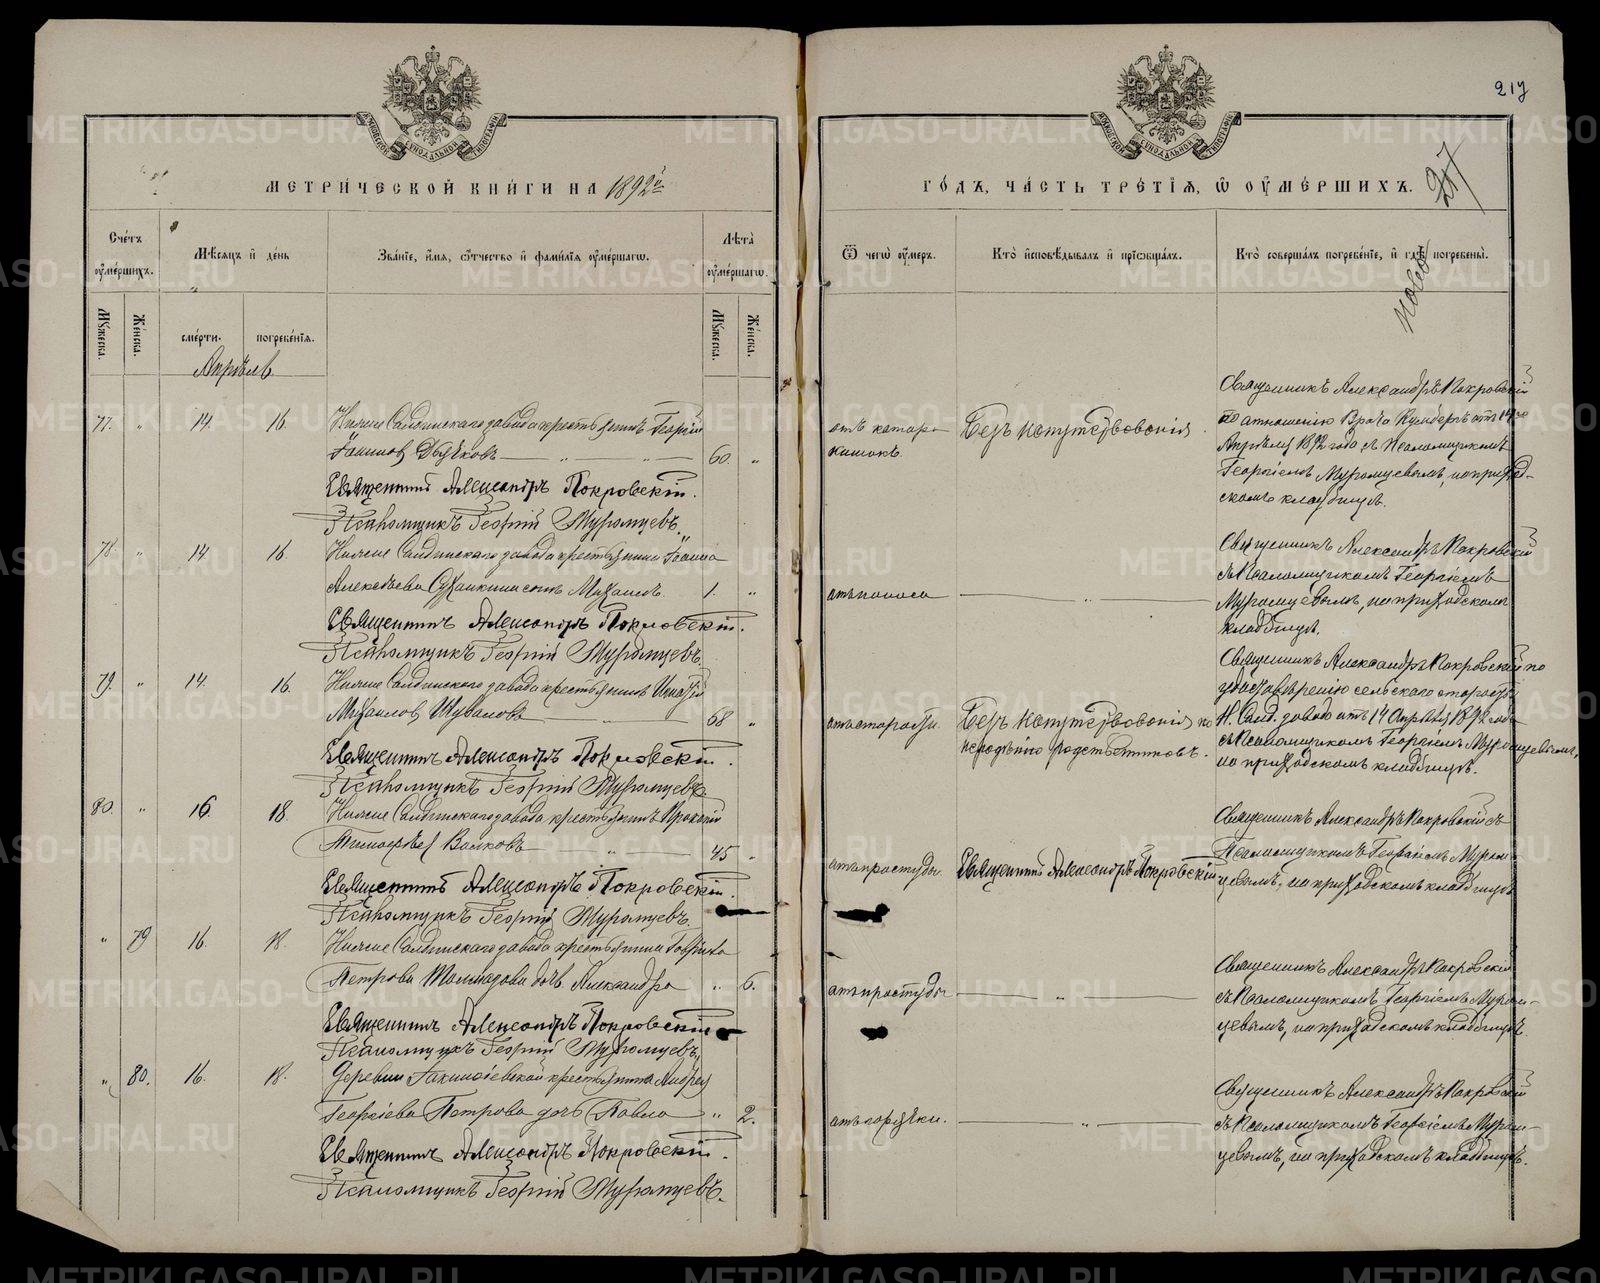 217
27
МЕТРИ́ЧЕСКОЙ КНИ́ГИ НА 1892й
ГО́ДЪ, ЧА́СТЬ ТРЕ́ТІѦ, Ѡ ОУМЕ́РШИХЪ.
Сче́тъ оумéршихъ.
Мѣ́сяцъ и день
Зва́ніе, и́мя, ѻ́тчество и фами́лія оуме́ршагѡ.
Лѣ́та оуме́ршагѡ.
Ѿ чегѡ̀ оу́меръ.
Кто̀ и҆сповѣ́дывалъ и прїѡбща́лъ.
Кто̀ соверша́лъ погребе́нїе, и гдѣ̀ погребены̀.
Мꙋ́жеска.
Же́нска.
сме́рти.
погребе́нїя.
Мꙋ́жеска.
Же́нска.
Апрѣль
77. " 14. 16. Нижне Салдинскаго завода крестьянинъ Георгій
60. "
Священникъ Александръ Покровскій.
Псаломщикъ Георгій Муромцевъ.
отъ катара кишокъ.
Безъ напутствованія
Священникъ Александръ Покровскій
по отношенію Врача отъ 14го
Апрѣля 1892 года съ Псаломщикомъ
Георгіемъ Муромцевымъ, на приход-
скомъ кладбищѣ.
78 " 14 16 Нижне Салдинскаго завода крестьянина Іоанна
Алексѣева сынъ Михаилъ. 1. "
Священникъ Александръ Покровскій.
Псаломщикъ Георгій Муромцевъ.
отъ поноса
Священникъ Александръ Покровскій
съ Псаломщикомъ Георгіемъ
Муромцевымъ, на приходскомъ
кладбищѣ.
79. " 14. 16. Нижне Салдинскаго завода крестьянинъ Игнатій
Михаиловъ Шуваловъ 68 "
Священникъ Александръ Покровскій.
Псаломщикъ Георгій Муромцевъ
отъ старости.
Безъ напутствованія по
нерадѣнію родственниковъ.
Священникъ Александръ Покровскій по
удостовѣренію сельскаго старосты
Н. Салд. завода отъ 14 Апрѣля 1892 года
съ Псаломщикомъ Георгіемъ Муромцевымъ,
на приходскомъ кладбищѣ.
80. " 16. 18. Нижне Салдинскаго завода крестьянинъ Прокопій
Тимофѣевъ Волковъ 45 "
Священникъ Александръ Покровскій.
Псаломщикъ Георгій Муромцевъ.
отъ простуды.
Священникъ Александръ Покровскій
Священникъ Александръ Покровскій съ
Псаломщикомъ Георгіемъ Муром-
цевымъ, на приходскомъ кладбищѣ
" 79 16. 18. Нижне Салдинскаго завода крестьянина Гавріила
Петрова дочь Александра " 6.
Священникъ Александръ Покровскій
Псаломщикъ Георгій Муромцевъ.
отъ простуды
Священникъ Александръ Покровскій
съ Псаломщикомъ Георгіемъ Муром-
цевымъ, на приходскомъ кладбищѣ.
" 80. 16. 18. Деревни крестьянина Андрея
Георгіева Петрова дочь Павла " 2.
Священникъ Александръ Покровскій.
Псаломщикъ Георгій Муромцевъ.
отъ горячки.
Священникъ Александръ Покровскій
съ Псаломщикомъ Георгіемъ Муром-
цевымъ, на приходскомъ кладбищѣ.
METRIKI.GASO-URAL.RU